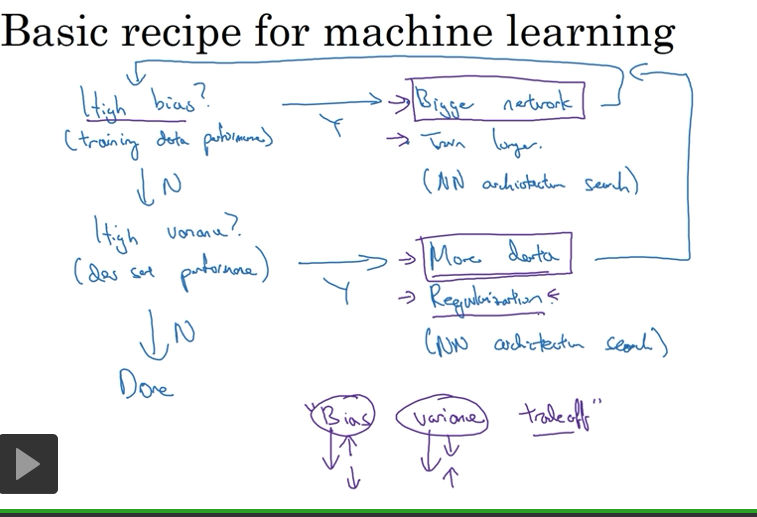 Basic recipe for machine learning
High bias?
(training data performance)
Y
→ Bigger network
→ Train longer.
(NN architecture search)
N
High variance?
(dev set performance)
Y
→ More data
→ Regularization ←
(NN architecture search)
N
Done
"Bias variance tradeoff"